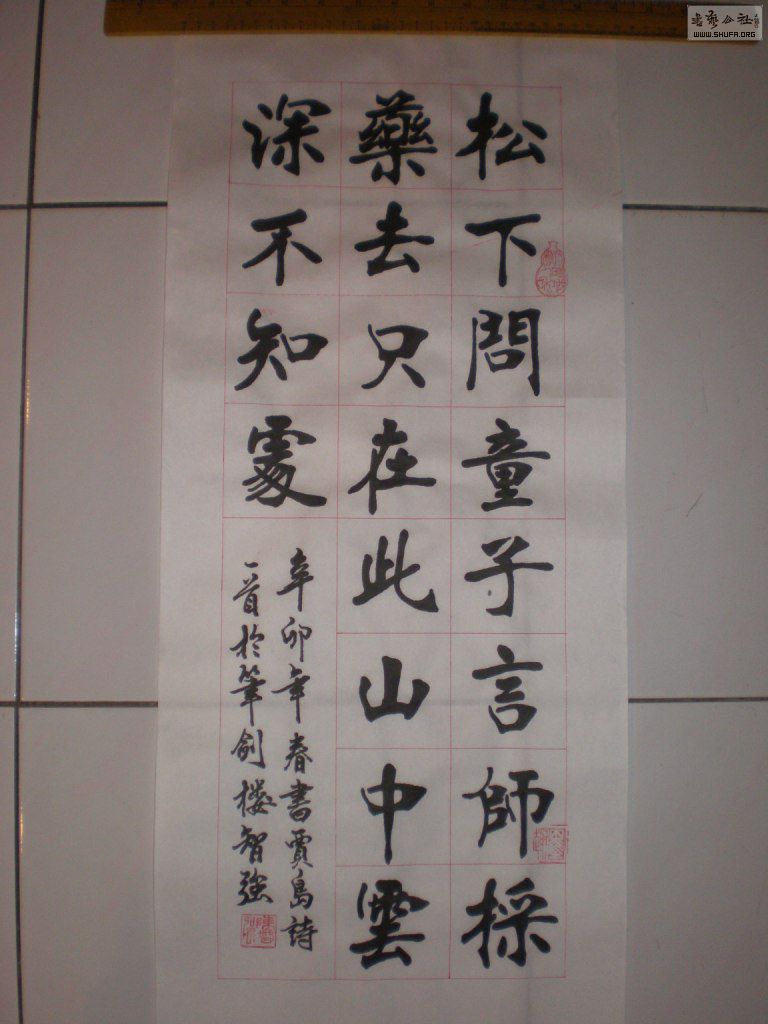 松下問童子言師採
藥去只在此山中雲
深不知處
辛卯年春書賈島詩
一首於筆劍樓智強
書藝公社
WWW.SHUFA.ORG